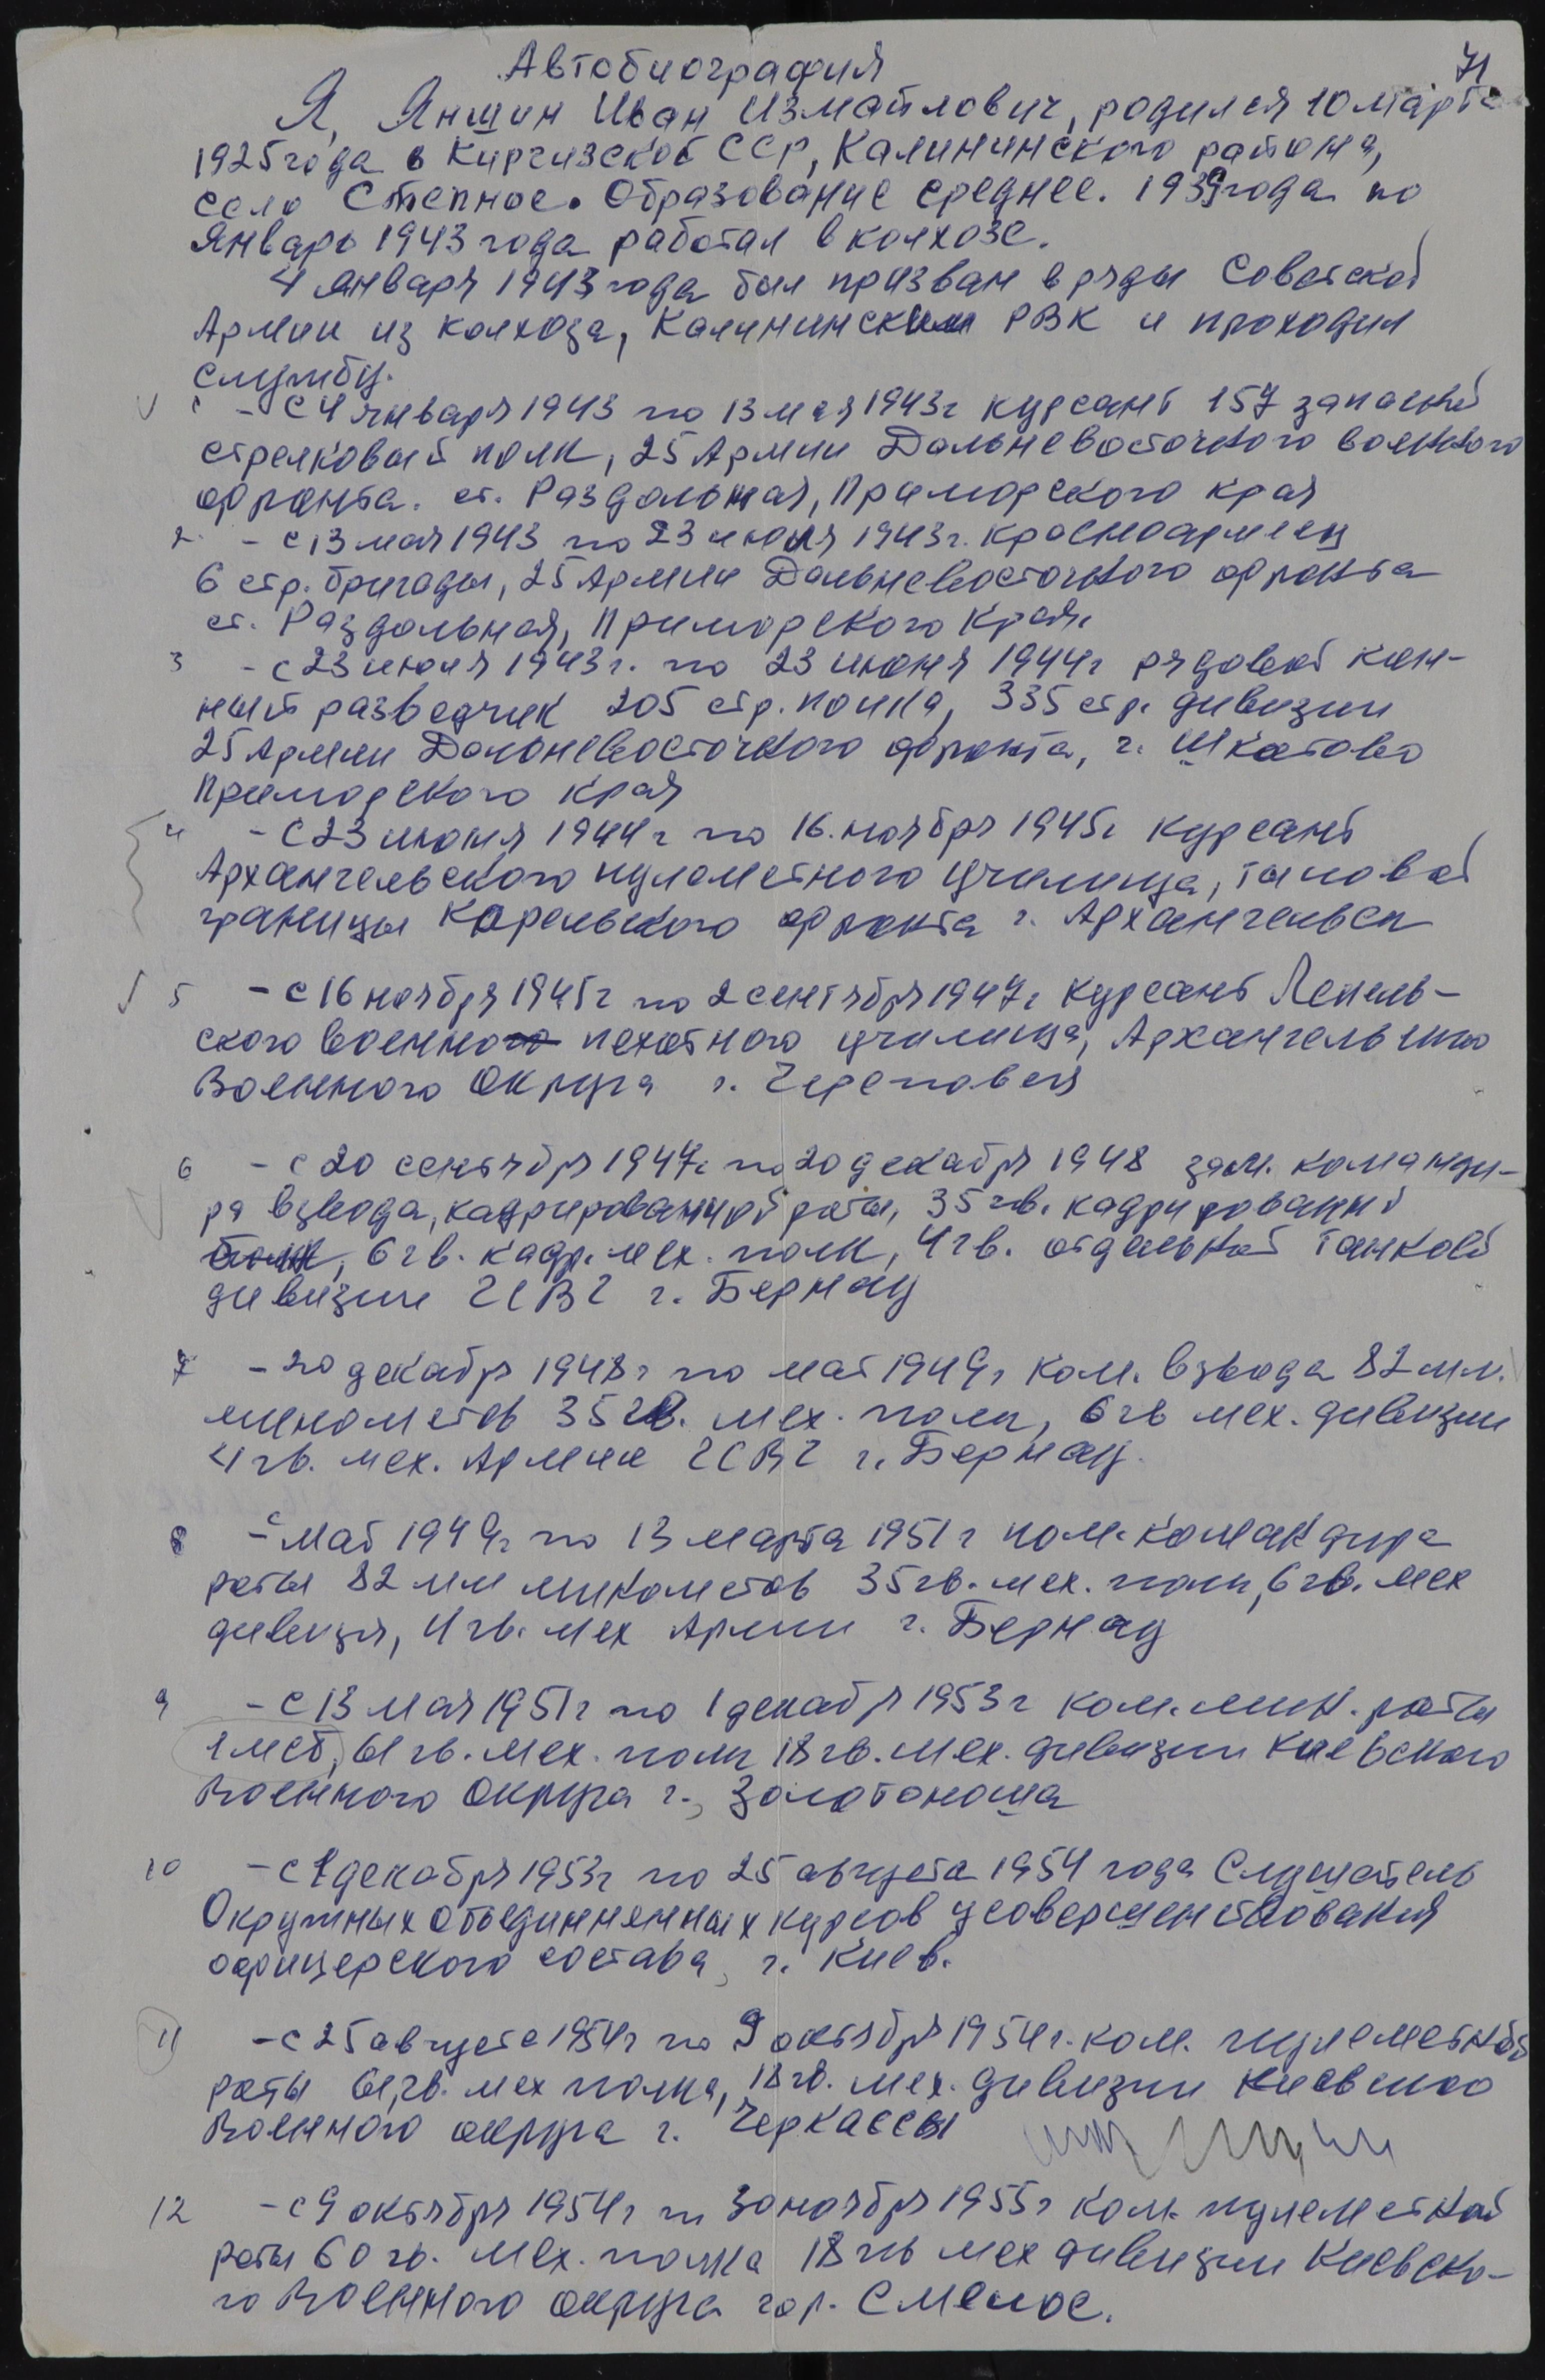 71
Автобиография
Я, Яншин Иван Измайлович, родился 10 марта
1925 года в Киргизской ССР, Калининского района,
село Степное. Образование среднее. 1939 года по
январь 1943 года работал в колхозе.
4 января 1943 года был призван в ряды Советской
Армии из колхоза, Калининским РВК и проходил
службу.
1 - С 4 января 1943 по 13 мая 1943 г курсант 157 запасный
стрелковый полк, 25 Армии Дальневосточного военного
фронта. ст. Раздольная, Приморского края
2. - с 13 мая 1943 по 23 июля 1943 г. красноармеец
6 стр. бригады, 25 Армии Дальневосточного фронта
ст. Раздольная, Приморского края.
3 - с 23 июля 1943 г. по 23 июня 1944 г рядовой кон-
ный разведчик 205 стр. полка, 335 стр. дивизии
25 Армии Дальневосточного фронта, г. Шкотово
Приморского края
4 - С 23 июня 1944 г по 16. ноября 1945 г курсант
Архангельского пулеметного училища, тыловой
границы Карельского фронта г. Архангельск
5 - с 16 ноября 1945 г по 2 сентября 1947 г курсант Лепель-
ского военного пехотного училища, Архангельского
Военного Округа г. Череповец
6 - с 20 сентября 1947 г по 20 декабря 1948 зам. команди-
ра взвода, кадрированной роты, 35 гв. кадрированный
6 гв. кадр. мех. полк, 4 гв. отдельной танковой
дивизии ГСВГ г. Бернау
7 - 20 декабря 1948 г по май 1949 г ком. взвода 82 мм.
минометов 35 гв. мех. полк, 6 гв мех. дивизии
4 гв. мех. Армии ГСВГ г. Бернау.
8 - с май 1949 г по 13 марта 1951 г пом. командира
роты 82 мм минометов 35 гв. мех. полк, 6 гв. мех
дивизия, 4 гв. мех Армии г. Бернау
9 - с 13 мая 1951 г по 1 декабря 1953 г ком. мин. роты
1 мсб, 61 гв. мех. полк 18 гв. мех. дивизии Киевского
Военного Округа г., Золотоноша
10 - с 1 декабря 1953 г по 25 августа 1954 года Слушатель
Окружных объединнянных курсов усовершенствования
офицерского состава, г. Киев.
11 - с 25 августа 1954 г по 9 октября 1954 г. ком. пулеметной
роты 61, гв. мех полка, 18 гв. мех. дивизии Киевского
Военного округа г. Черкассы
12 - с 9 октября 1954 г по 30 ноября 1955 г ком. пулеметной
роты 60 гв. мех. полка 18 гв мех дивизии Киевско-
го Военного округа гор. Смелое.